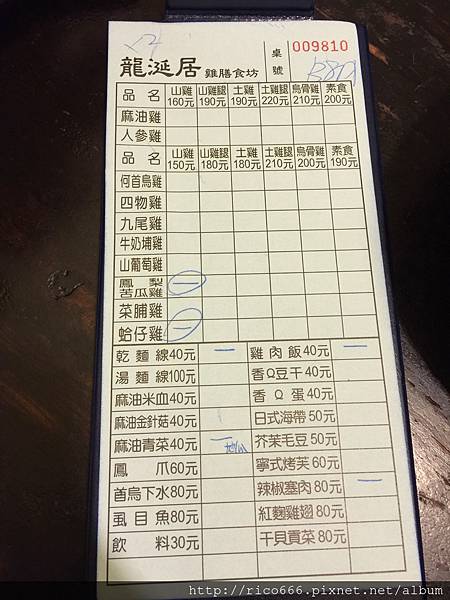 龍涎居 雞膳食坊 桌號 009810
品名 山雞160元 山雞腿190元 土雞190元 土雞腿220元 烏骨雞210元 素食200元
麻油雞
人參雞
品名 山雞150元 山雞腿180元 土雞180元 土雞腿210元 烏骨雞200元 素食190元
何首烏雞
四物雞
九尾雞
牛奶埔雞
山葡萄雞
鳳梨苦瓜雞 一
菜脯雞
蛤仔雞 一
乾麵線40元 一 雞肉飯40元 一
湯麵線100元 香Q豆干40元
麻油米血40元 香Q蛋40元
麻油金針菇40元 日式海帶50元
麻油青菜40元 一 芥茉毛豆50元
鳳爪60元 寧式烤芙60元
首烏下水80元 辣椒塞肉80元 一
虱目魚80元 紅麴雞翅80元
飲料30元 干貝貢菜80元
http://rico666.pixnet.net/album